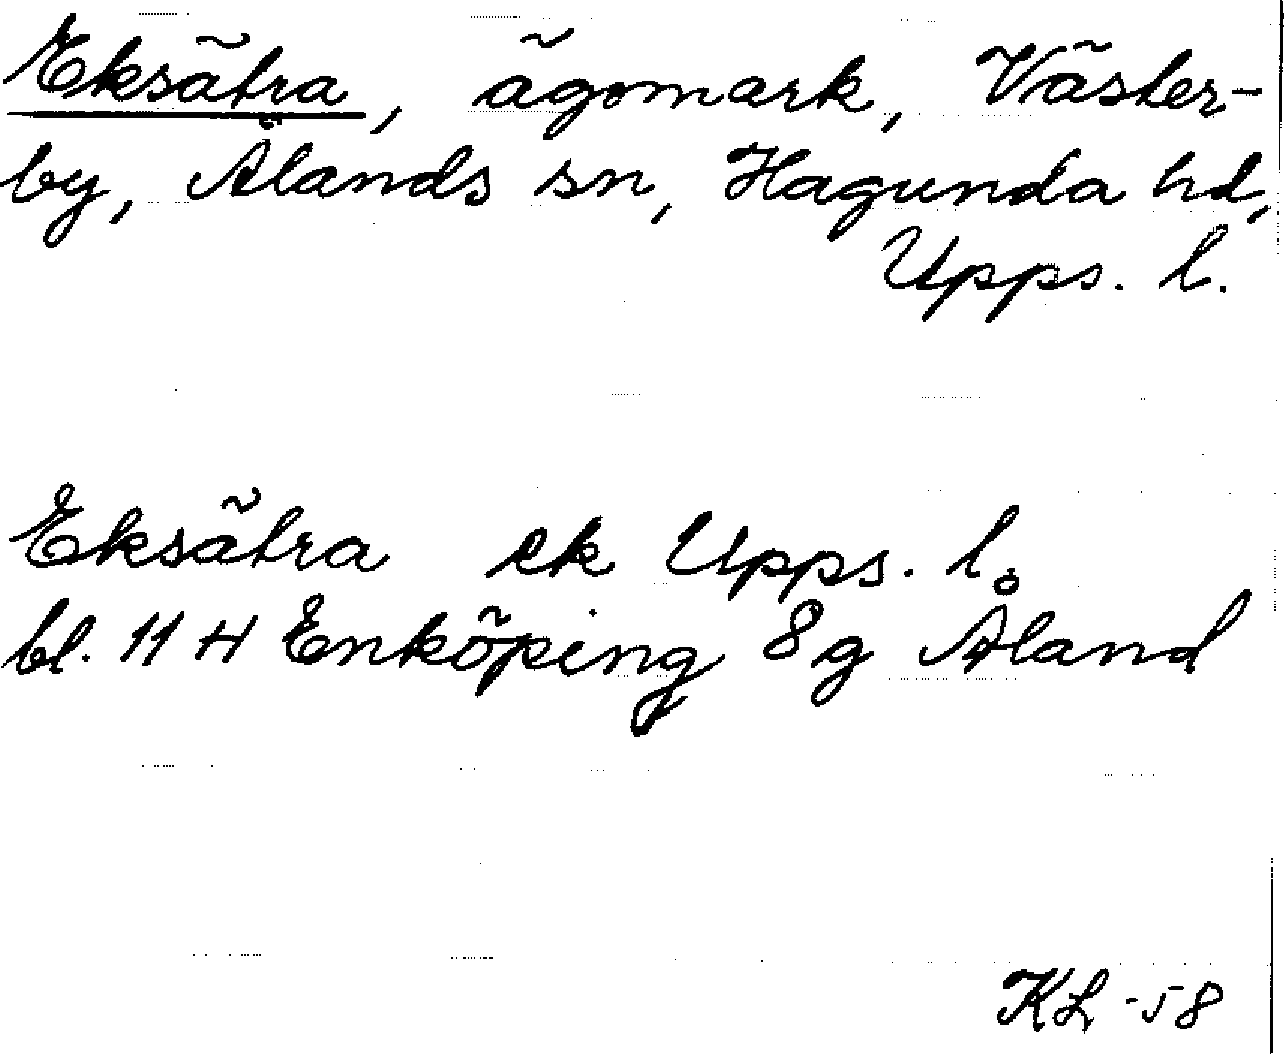 Eksätra, ägomark, Väster-
by, Ålands sn, Hagunda hd,
Upps. l.
Eksätra ek Upps. l.
bl. 11 H Enköping 8g Åland
KL -58